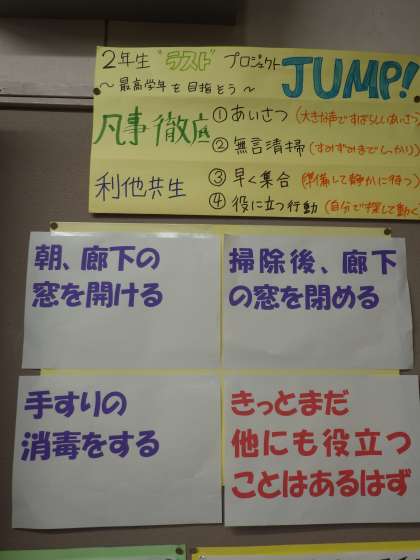 2年生 "ラスト" プロジェクト JUMP!
～最高学年を目指そう～
凡事徹底
利他共生
①あいさつ(大きな声ですばらしいあいさつ)
②無言清掃(すみずみまでしっかり)
③早く集合(準備して静かに待つ)
④役に立つ行動(自分で探して動く)
朝、廊下の
窓を開ける
掃除後、廊下
の窓を閉める
手すりの
消毒をする
きっとまだ
他にも役立つ
ことはあるはず